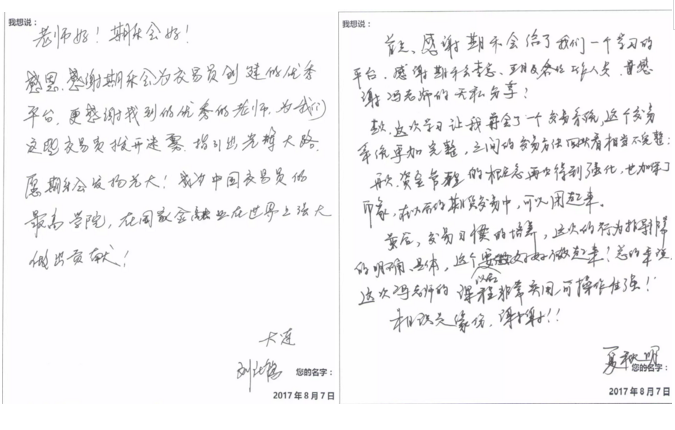 我想说：
老师好！期乐会好！
感恩、感谢期乐会为交易员创建的优秀
平台，更感谢找到的优秀的老师，为我们
这些交易员拨开迷雾，指引出光辉大路。
愿期乐会发扬光大！成为中国交易员的
最高学院，在国家金融业在世界上强大
做出贡献！
大连
您的名字：
2017年8月7日
我想说：
首先、感谢期乐会给了我们一个学习的
平台，感谢期乐会李总、王班及各位工作人员，再感
谢冯老师的无私分享！
这次学习让我再全了一个交易系统，这个交易
系统更加完整，之间的交易方法回头看相当不完整；
再次，资金管理的概念再次得到强化，也加深了
印象，在以后的期货交易中，可以用起来。
最后，交易习惯的培养，这次的行为指引非常
的明确、具体，这个要做好好做起来！总的来说
以后
这次冯老师的课程非常实用可操作性强！！
相识是缘份，谢谢！！
夏秋明
您的名字：
2017年8月7日